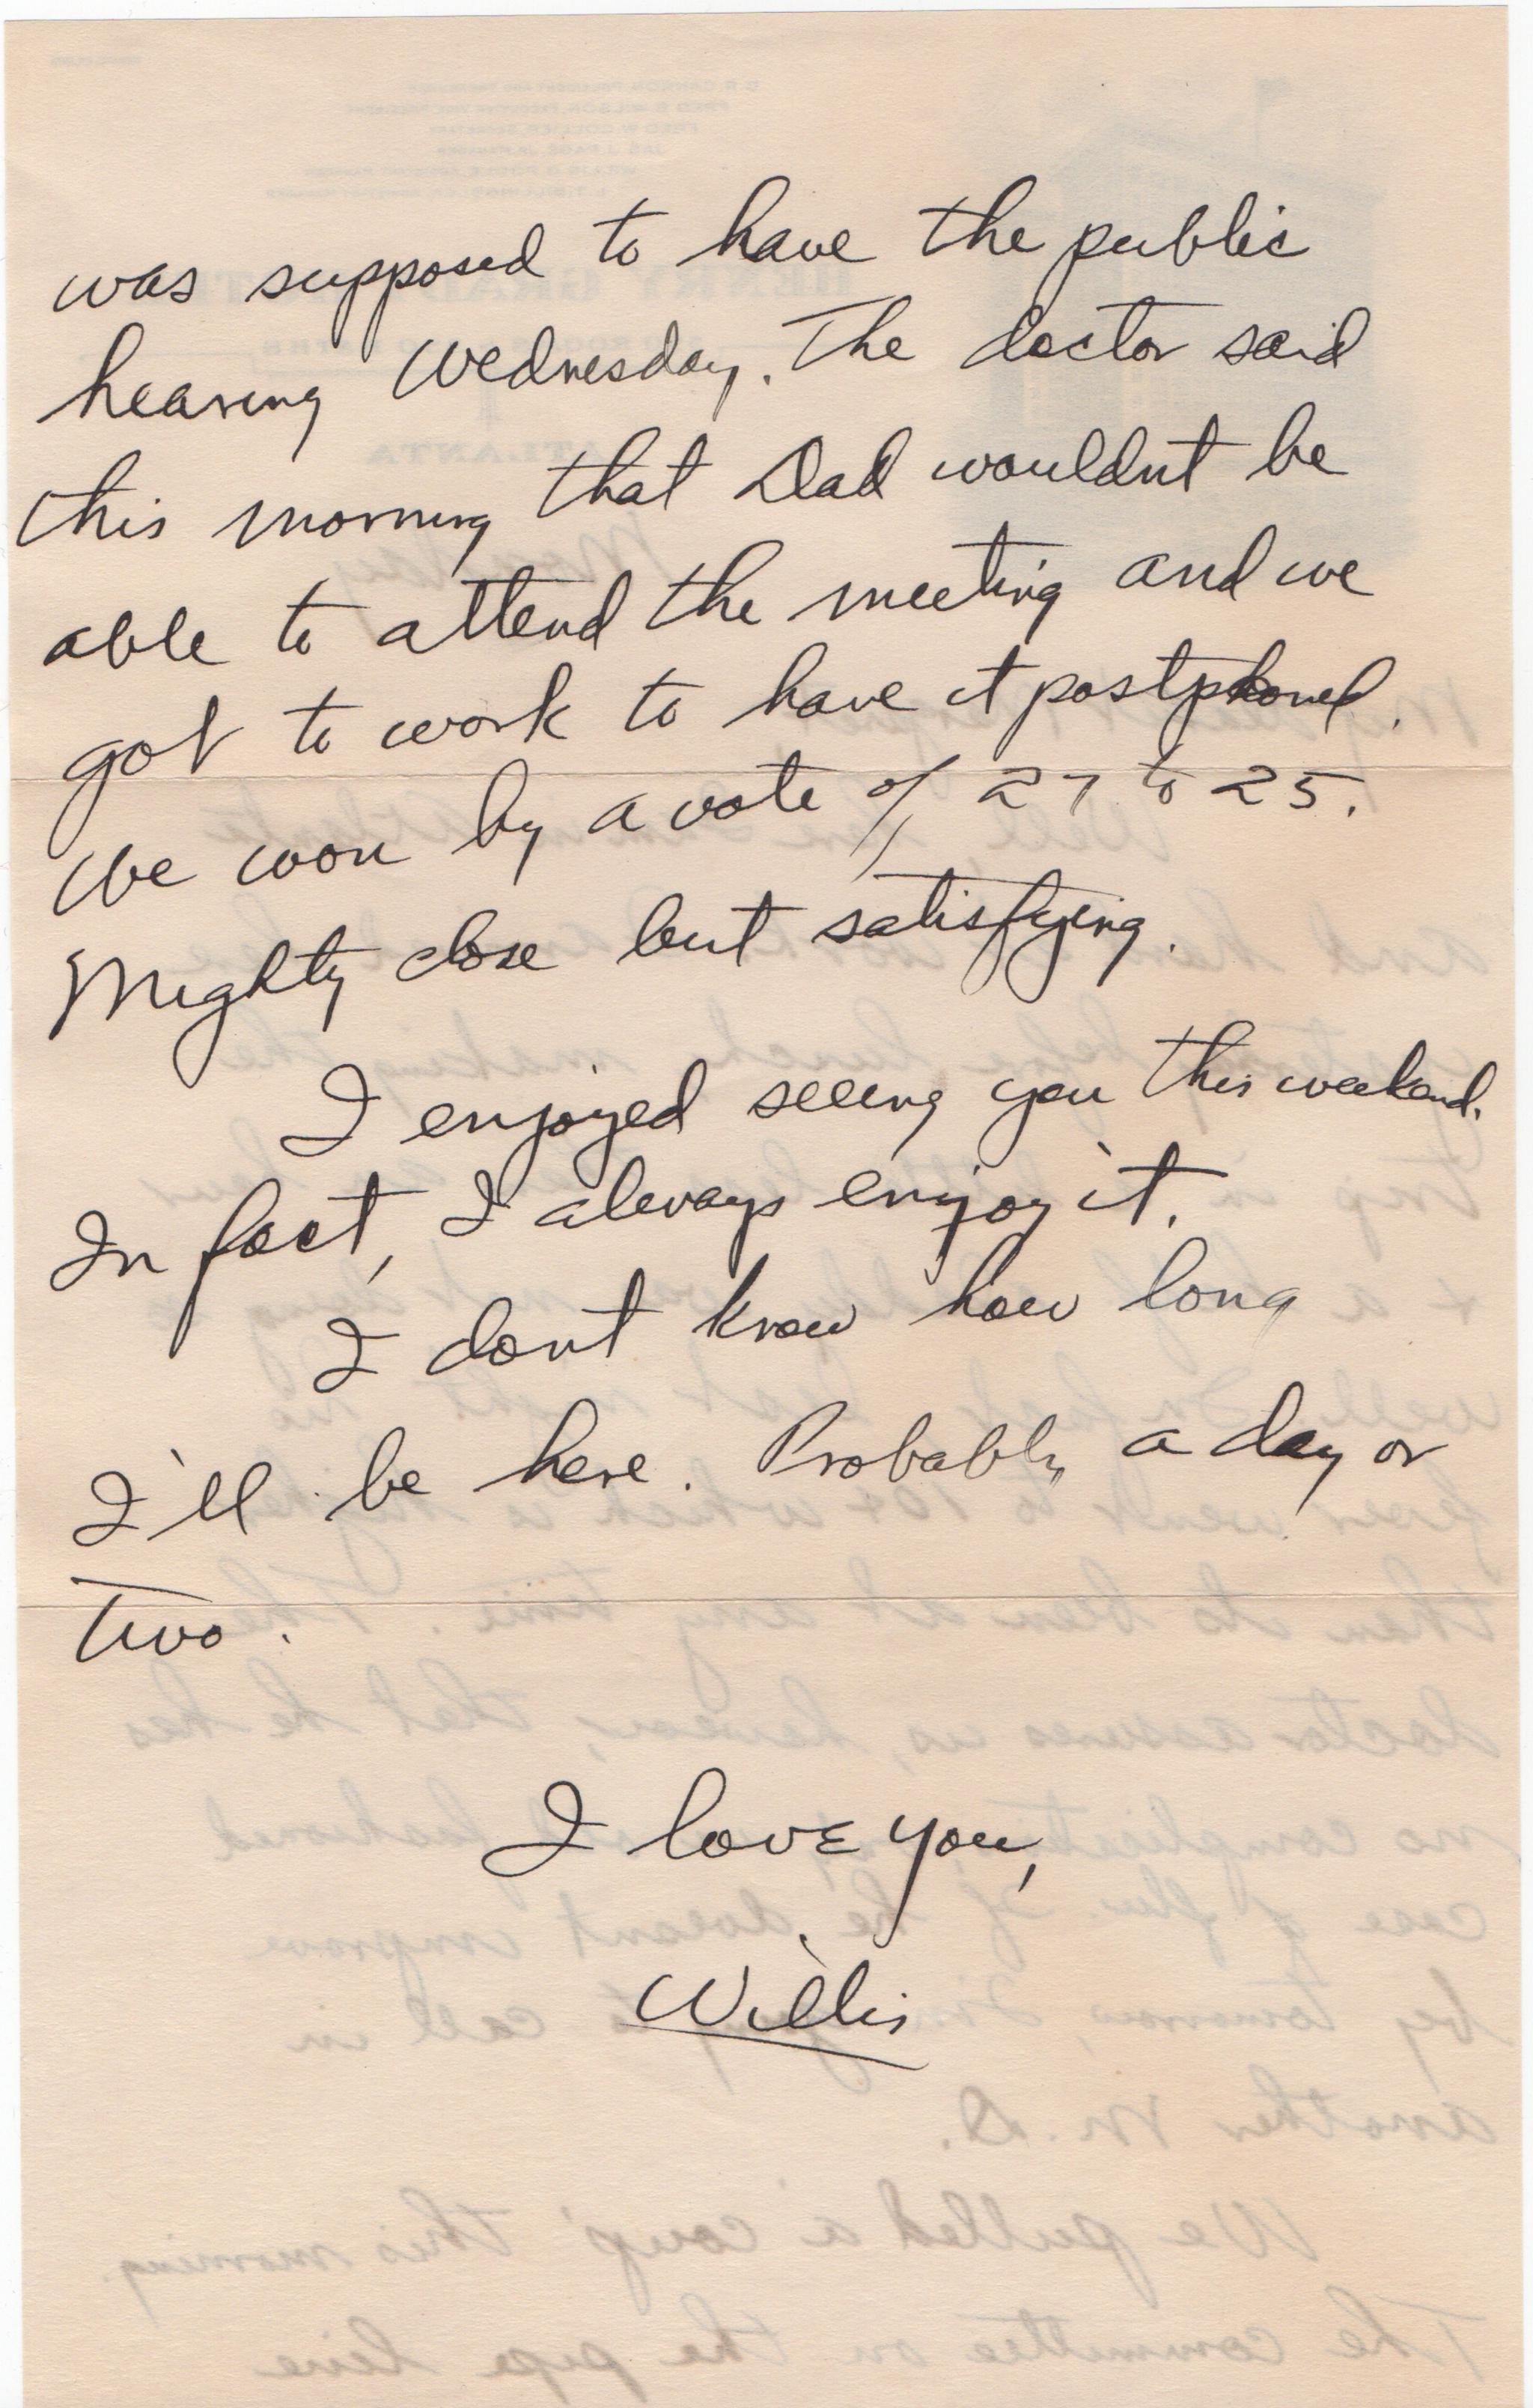 was supposed to have the public
hearing Wednesday. The doctor said
this morning that Dad wouldnt be
able to attend the meeting and we
got to work to have it postphoned.
We won by a vote of 27 to 25.
Mighty close but satisfying.
I enjoyed seeing you this weekend.
In fact, I always enjoy it.
I dont know how long
I'll be here. Probably a day or
two.
I love you,
Willis